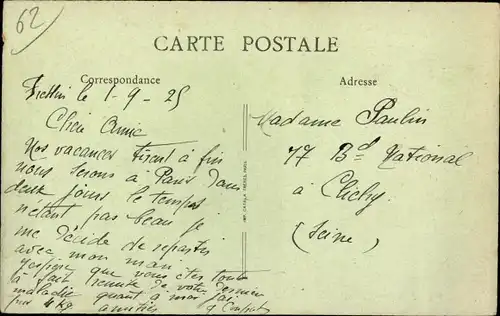 62
CARTE POSTALE
Correspondance
Adresse
le 1-9-25
Chère Amie
Nos vacances tirent à fin
nous serons à Paris dans
deux jours le temps
n'étant pas beau je
me décide de repartir
avec mon mari
j'espère que vous êtes toute
à fait remise de votre dernière
maladie quant à moi j'ai
pris 4 kg amitiés
Madame Paulin
77 Bd National
à Clichy
(Seine)
IMP. CATALA FRÈRES, PARIS